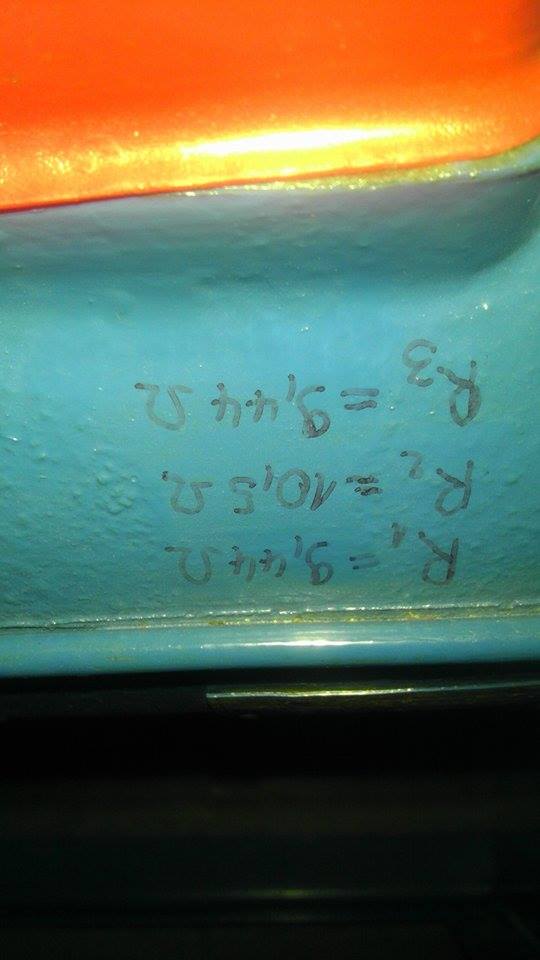 R₁ = 9,44 Ω
R₂ = 10,5 Ω
R₃ = 9,44 Ω